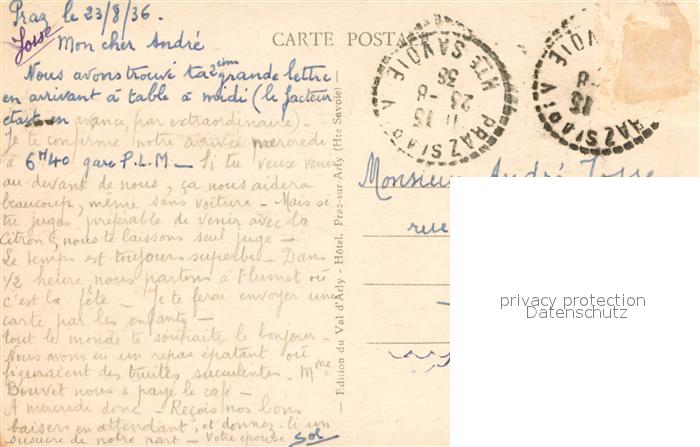 Praz le 23/8/36.
Josse
Mon cher André
CARTE POSTALE
Nous avons trouvé ta 2ième grande lettre
en arrivant à table à midi (le facteur
était en avance, par extraordinaire).
Je te confirme notre arrivée mercredi
à 6H40 gare P.L.M. - Si tu veux venir
au-devant de nous, ça nous aidera
beaucoup, même sans voiture - Mais si
tu juges préférable de venir avec la
Citron, nous te laissons seul juge -
Le temps est toujours superbe - Dans
1/2 heure nous partons à Flumet où
c'est la fête - Je te ferai envoyer une
carte par les enfants -
tout le monde te souhaite le bonjour -
Nous avons eu un repas épatant où
figuraient des truites succulentes - Mme
Bouvet nous a payé le café -
A mercredi donc - Reçois nos bons
baisers en attendant, et donnez-li un
susucre de notre part - Votre épouse
Sol
Edition du Val d'Arly - Hôtel. Praz-sur-Arly (Hte Savoie)
HTE SAVOIE
23 -8
36
Monsieur André Josse
rue
privacy protection
Datenschutz